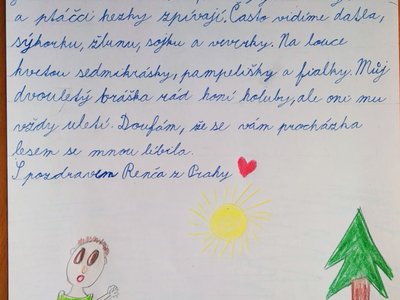 a ptáčci hezky zpívají. Často vidíme datla,
sýkorku, žlunu, sojku a veverky. Na louce
kvetou sedmikrásky, pampelišky a fialky. Můj
dvouletý bráška rád honí holuby, ale oni mu
vždy uletí. Doufám, že se vám procházka
lesem se mnou líbila.
S pozdravem Renča z Prahy